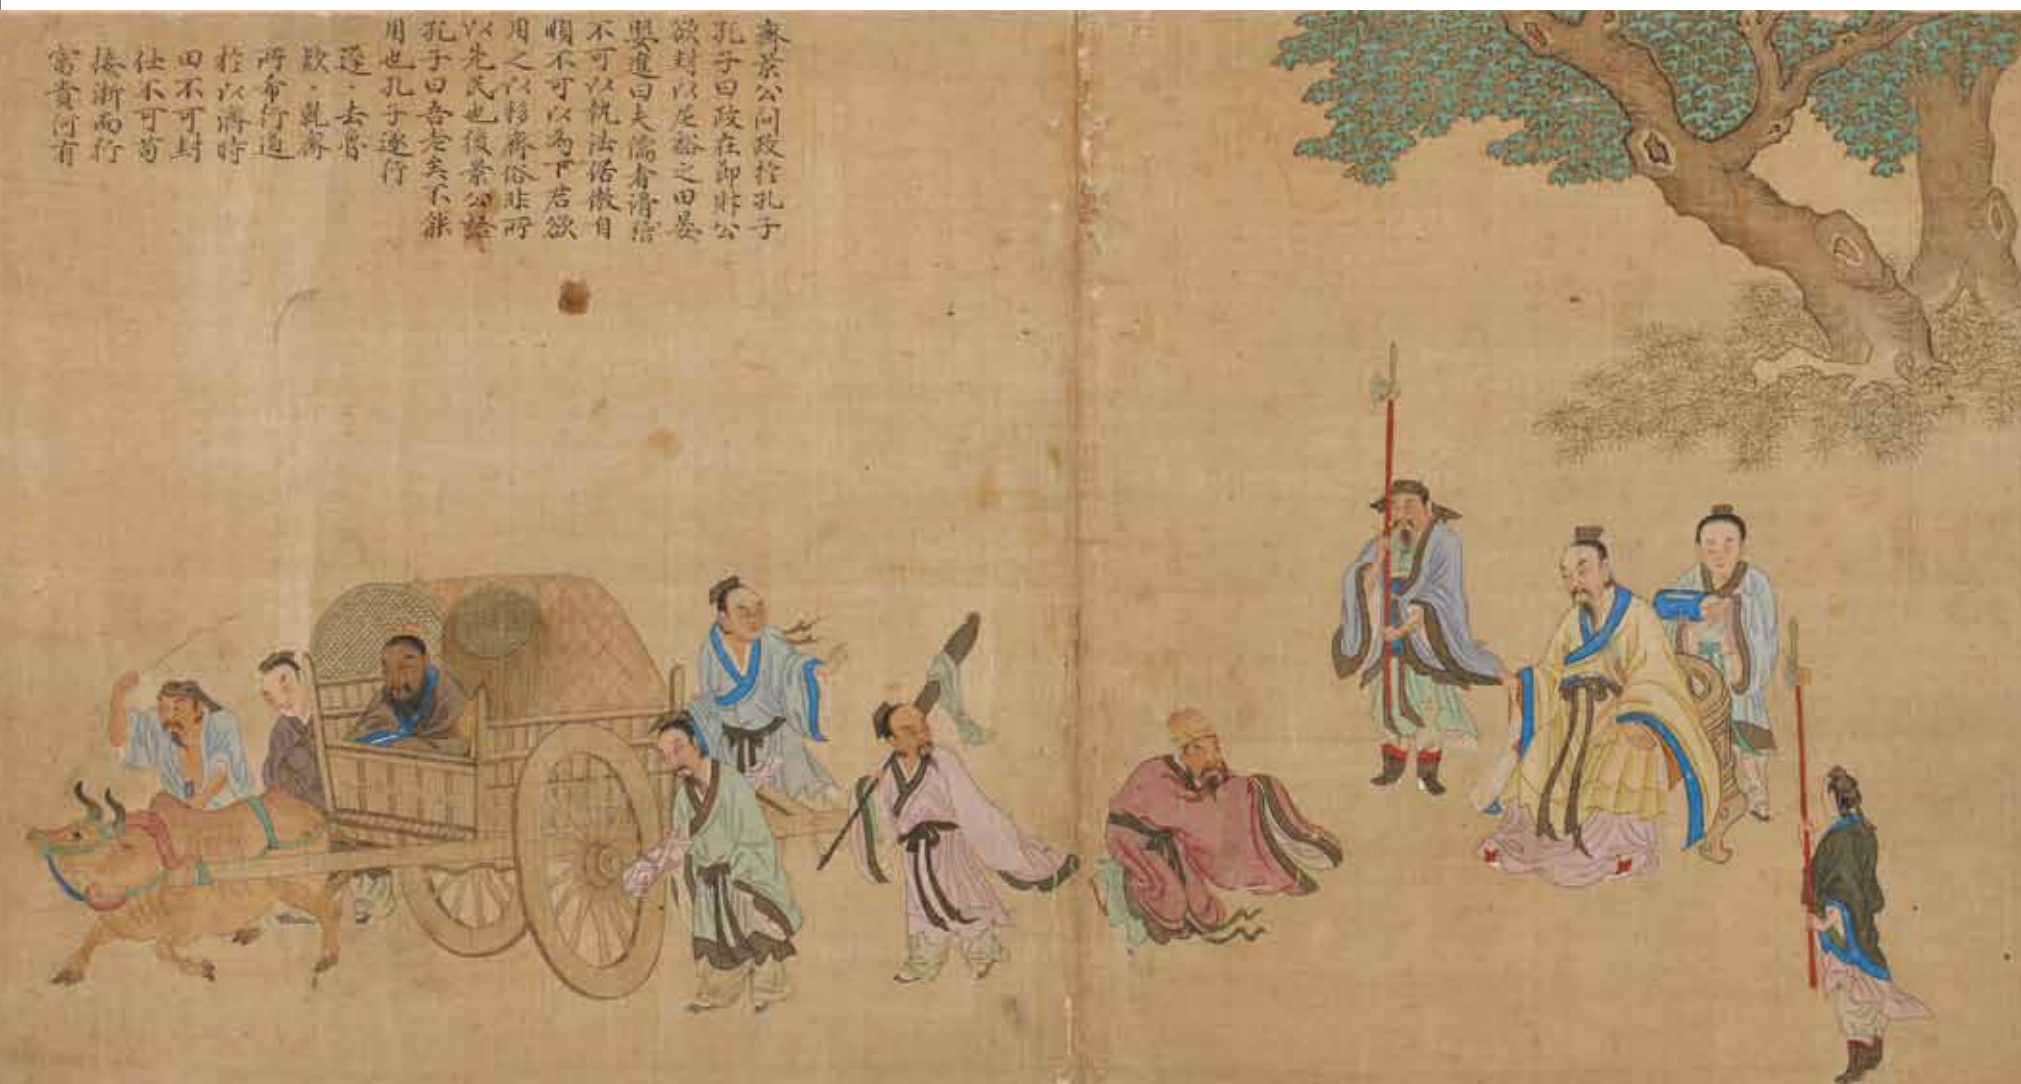 齊景公问政於孔子
孔子曰政在節財公
欲封以尼谿之田晏
嬰進曰夫儒者滑稽
不可以䡄法倨傲自
順不可以為下君欲
用之以移齊俗非所
以先民也後景公語
孔子曰吾老矣不能
用也孔子遂行
遲〻去魯
欵〻軋齊
所希行道
於以濟時
田不可封
仕不可苟
接淅而行
富貴何有